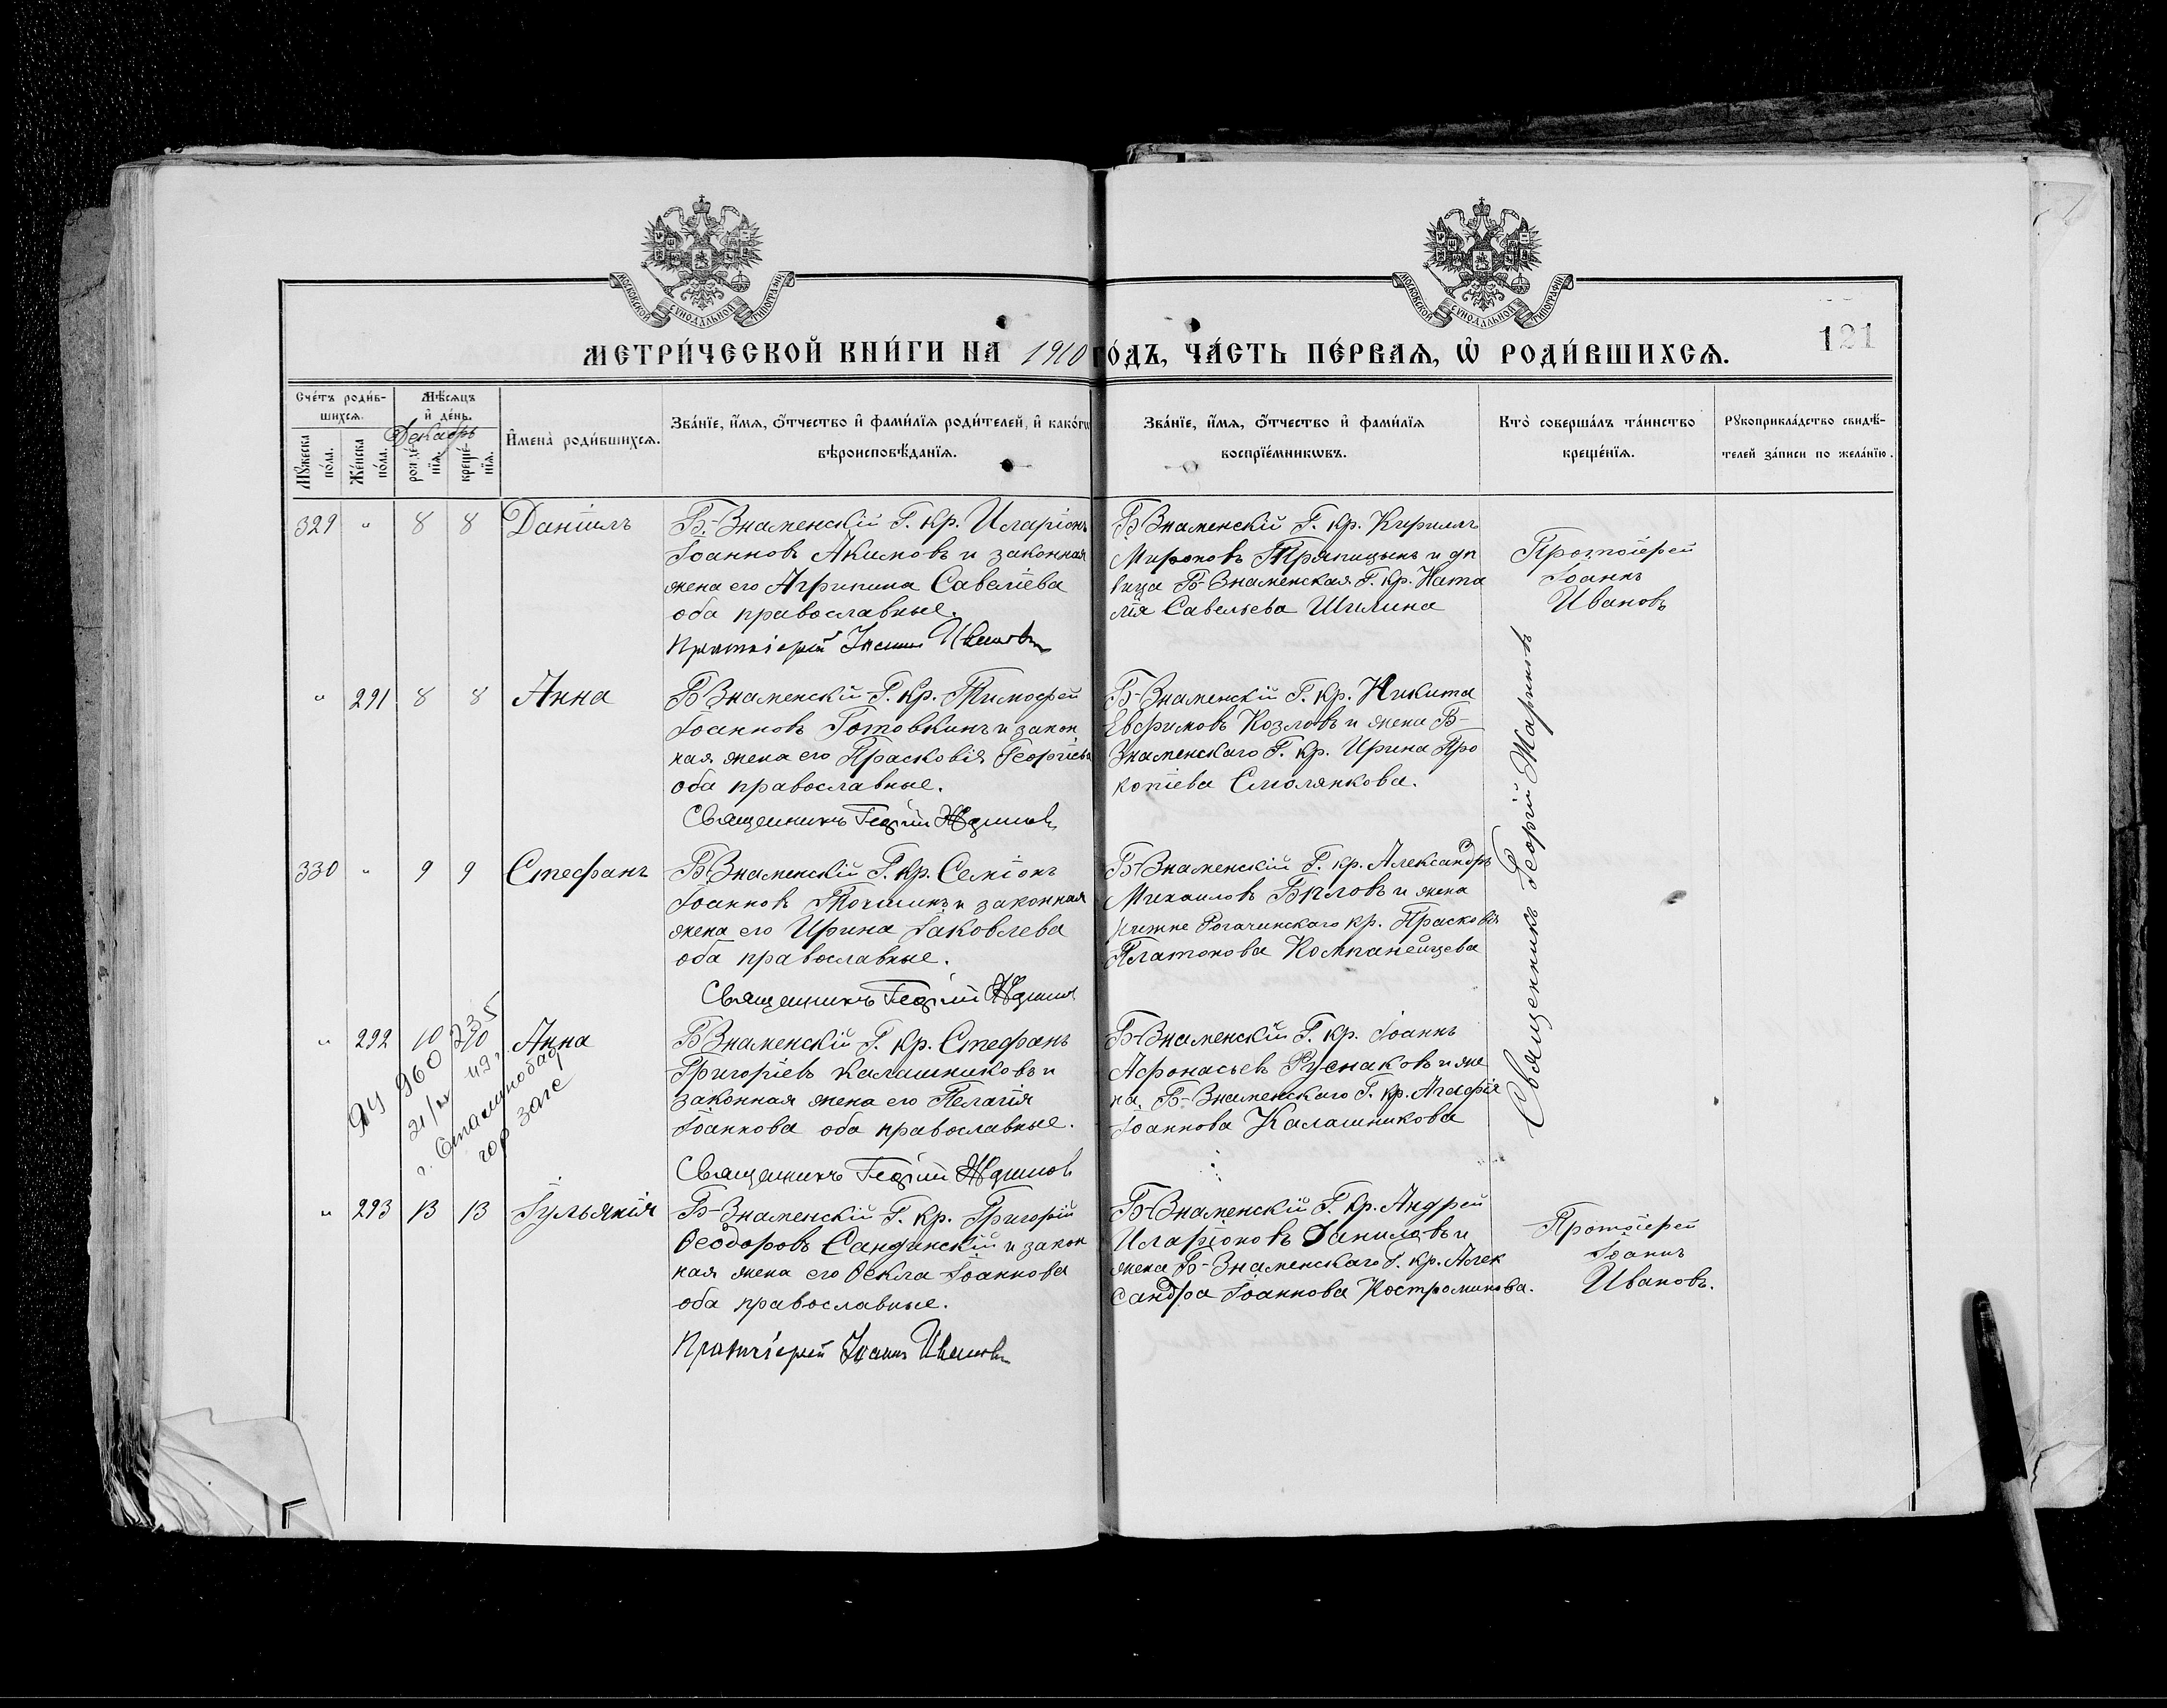 МОСКОВСКОЙ СУНОДАЛЬНОЙ ТИПОГРАФІИ
МОСКОВСКОЙ СУНОДАЛЬНОЙ ТИПОГРАФІИ
МЕТРИ́ЧЕСКОЙ КНИ́ГИ НА 1910 ГО́ДЪ, ЧА́СТЬ ПЕ́РВАѦ, Ѡ҆ РОДИ́ВШИХСѦ.
121
Сче́тъ роди́в-
шихсѧ.
Мꙋ́жеска по́ла.
Же́нска по́ла.
Мѣ́сѧцъ
и҆ де́нь.
Декабрь
рожде́нїѧ.
креще́нїѧ.
И҆мена̀ роди́вшихсѧ.
Зва́нїе, и҆́мѧ, ѻ҆́тчество и҆ фами́лїѧ роди́телей, и҆ како́гѡ
вѣроисповѣ́данїѧ.
Зва́нїе, и҆́мѧ, ѻ҆́тчество и҆ фами́лїѧ
воспрїе́мникѡвъ.
Кто̀ соверша́лъ та́инство
креще́нїѧ.
Рꙋкоприкла́дство свидѣ́-
телей за́писи по жела́нїю.
329 " 8 8 Даніилъ
Б-Знаменскій Г. кр. Иларіонъ
Іоанновъ Акимовъ и законная
жена его Агрипина Савеліева
оба православные.
Протоіерей Іоаннъ Ивановъ
Б-Знаменскій Г. кр. Кириллъ
Мироновъ Тряпицынъ и дѣ
вица Б-Знаменская Г. кр. Ната
лія Савельева Шилина
Протоіерей
Іоаннъ
Ивановъ
" 291 8 8 Анна
Б-Знаменскій Г. кр. Тимофей
Іоанновъ Готовкинъ и закон
ная жена его Прасковія Георгіева
оба православные.
Священникъ Георгій
Б-Знаменскій Г. кр. Никита
Евфимовъ Козловъ и жена Б-
Знаменскаго Г. кр. Ирина Про
копіева Смолянкова.
Священникъ Георгій
330 " 9 9 Стефанъ
Б-Знаменскій Г. кр. Симеонъ
Іоанновъ Точилинъ и законная
жена его Ирина Іаковлева
оба православные.
Священникъ Георгій
Б-Знаменскій Г. кр. Александръ
Михаиловъ Бѣловъ и жена
Нижне Рогачинскаго кр. Прасковія
Платонова Компанейцева
" 292 10 10 Анна
Б-Знаменскій Г. кр. Стефанъ
Григоріевъ Калашниковъ и
законная жена его Пелагія
Іоаннова оба православные.
Священникъ Георгій
Б-Знаменскій Г. кр. Іоаннъ
Афонасьевъ Руснаковъ и же
на Б-Знаменскаго Г. кр. Агафія
Іоаннова Калашникова
960 235
г. Сталинобад
гор загс
" 293 13 13 Іульянія
Б-Знаменскій Г. кр. Григорій
Ѳеодоровъ Сандинскій и закон
ная жена его Ѳекла Іоаннова
оба православные.
Протоіерей Іоаннъ Ивановъ
Б-Знаменскій Г. кр. Андрей
Иларіоновъ Даниловъ и
жена Б-Знаменскаго Г. кр. Алек
сандра Іоаннова Костромикова.
Протоіерей
Іоаннъ
Ивановъ.